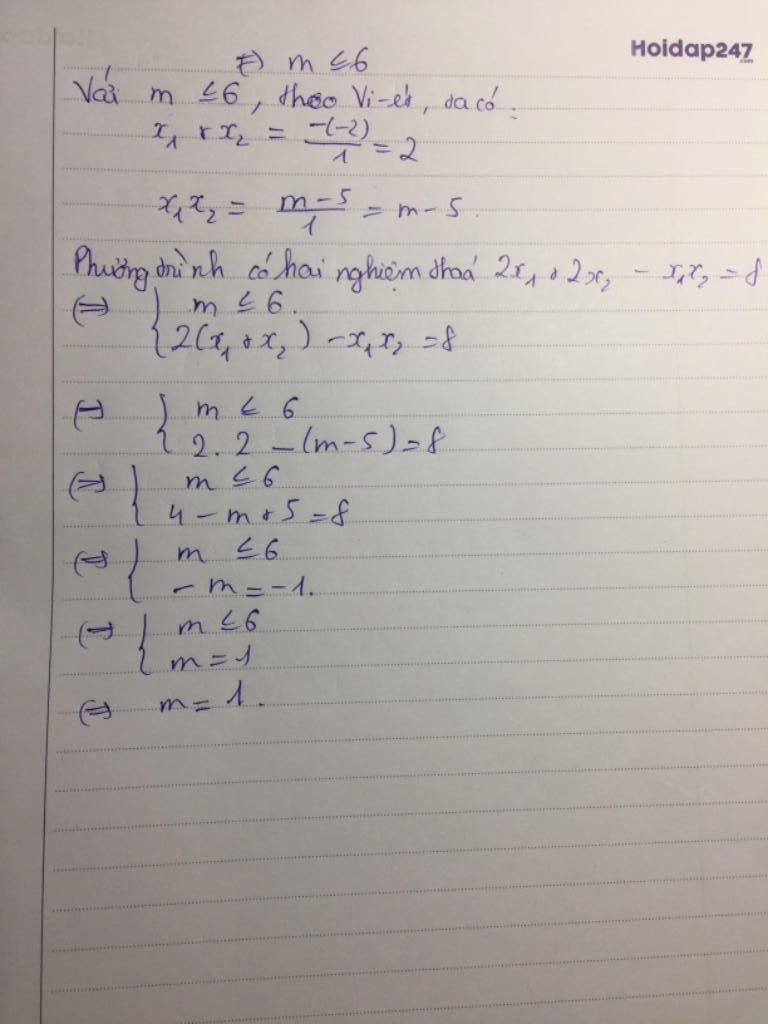 Hoidap247
.com
⇔ m ≤ 6
Với m ≤ 6, theo Vi-ét, ta có:
x₁ + x₂ = -(-2)/1 = 2
x₁x₂ = m-5/1 = m-5.
Phương trình có hai nghiệm thoả 2x₁ + 2x₂ - x₁x₂ = 8
⇔ { m ≤ 6.
2(x₁ + x₂) - x₁x₂ = 8
⇔ { m ≤ 6
2. 2 - (m-5) = 8
⇔ { m ≤ 6
4 - m + 5 = 8
⇔ { m ≤ 6
- m = -1.
⇔ { m ≤ 6
m = 1
⇔ m = 1.